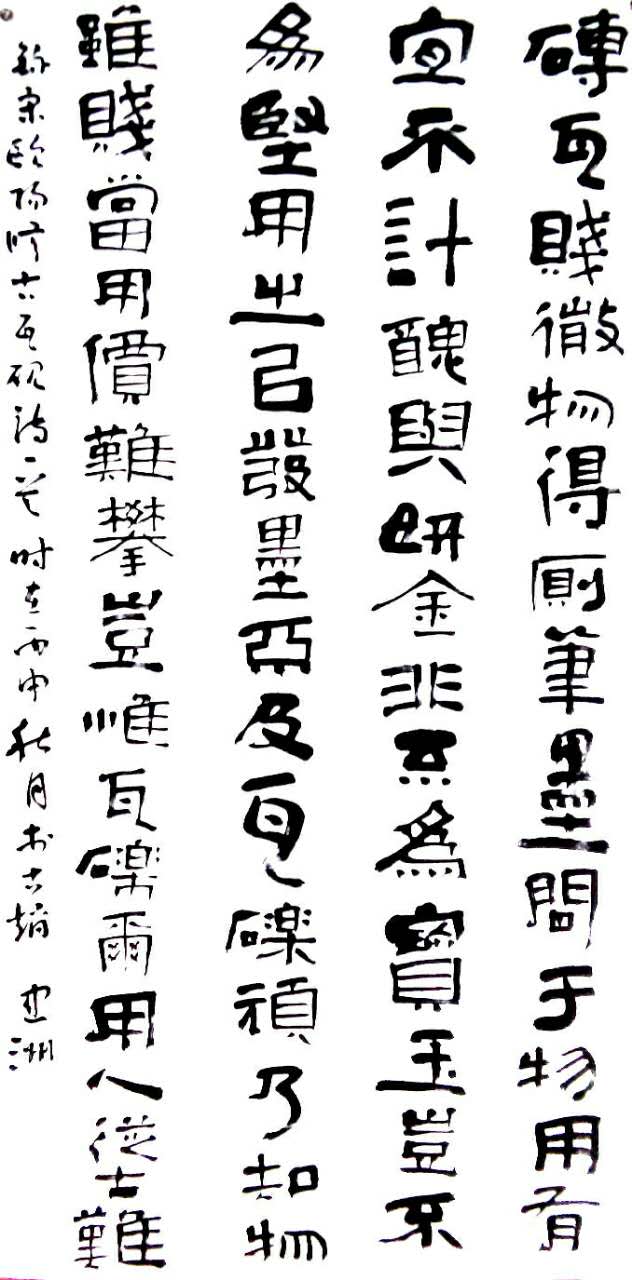 磚瓦賤微物得厠筆墨間于物用有
宜不計醜與妍金非不為寶玉豈不
為堅用之㠯發墨不及瓦礫頑乃知物
雖賤當用價難攀豈惟瓦礫爾用人從古難
錄宋歐陽修古瓦硯詩一首 时在丙申秋月於古趙 亞洲